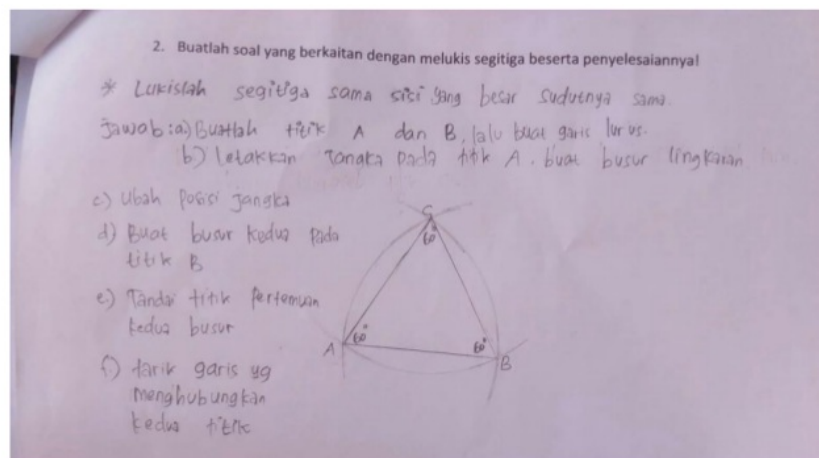 2. Buatlah soal yang berkaitan dengan melukis segitiga beserta penyelesaiannya!
* Lukislah segitiga sama sisi yang besar sudutnya sama.
Jawab: a) Buatlah titik A dan B, lalu buat garis lurus.
b) Letakkan Jangka pada titik A. buat busur lingkaran
c) Ubah Posisi jangka
d) Buat busur kedua pada
titik B
e) Tandai titik Pertemuan
kedua busur
f) tarik garis yg
menghubungkan
kedua titik
C
60°
A
60°
60°
B